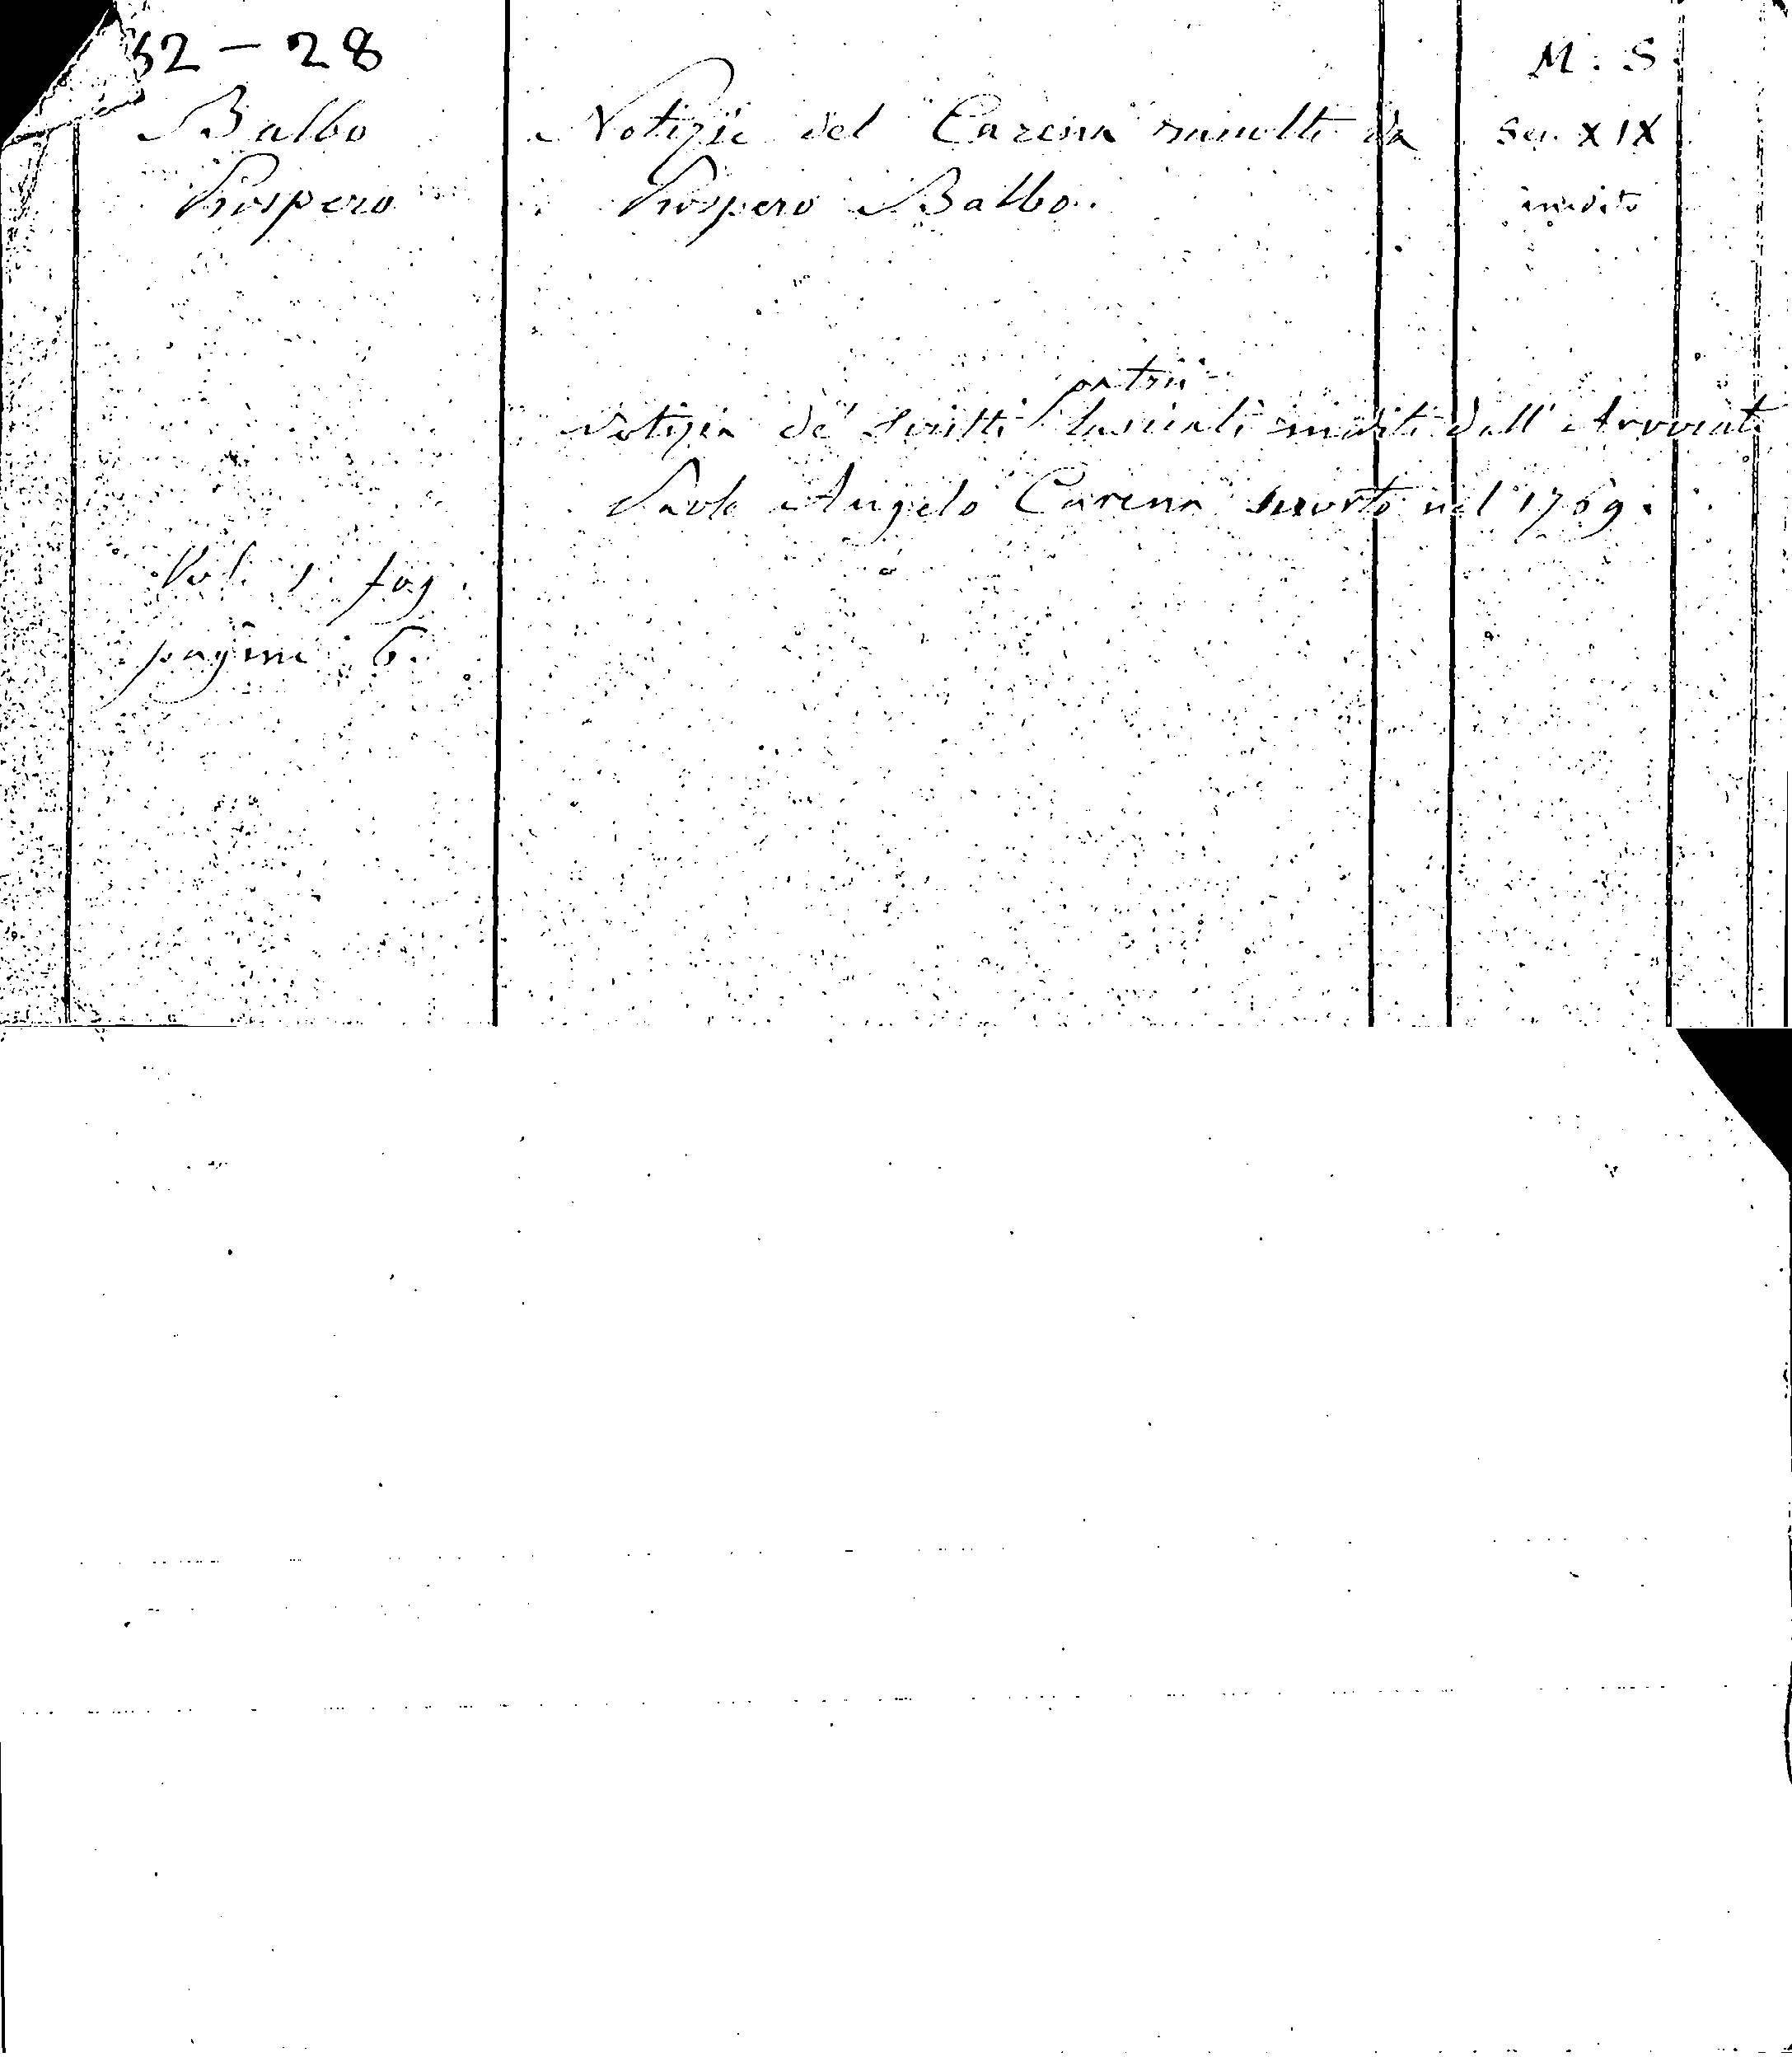 52 - 28
M. S.
Balbo
Notizie del Carena raccolte da
Sec. XIX
Prospero
Prospero Balbo.
inedito
patrii
Notizia de' scritti lasciati inediti dall' Avvocato
Paolo Angelo Carena morto nel 1769.
Vol. 1. fog.
pagine 6.